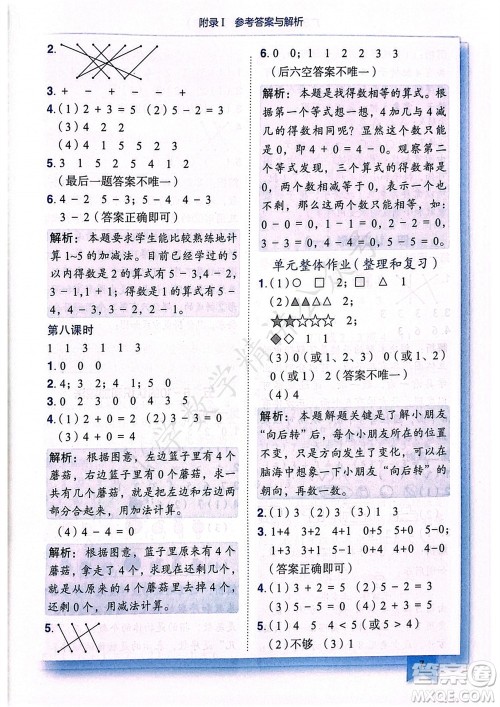 附录Ⅰ 参考答案与解析
2.
3. > < = > < =
4. (1) 2 + 3 = 5 (2) 5 - 2 = 3
(3) 4 (4) 2
5. 3 1 5 2 5 5 4 1 2
(最后一题答案不唯一)
6. 4 - 2 5 - 3 5 - 4 4 - 3
3 - 2 (答案正确即可)
解析：本题要求学生能比较熟练地计
算 1~5 的加减法。目前已经学过的 5
以内得数是 2 的算式有 5 - 3，4 - 2，
3 - 1，1 + 1；得数是 1 的算式有 5 - 4，
4 - 3，3 - 2，2 - 1。
第八课时
1 1 3 1 1 3
1. 0 0 0
2. 4；3；2，4；5
3. (1) 2 + 0 = 2 (2) 3 - 3 = 0
(3) 4 + 4 = 8
解析：根据图意，左边篮子里有 4 个
蘑菇，右边篮子里有 4 个蘑菇，求一
共有几个蘑菇，就是把左边和右边两
部分合起来，用加法计算。
(4) 4 - 4 = 0
解析：根据图意，篮子里原来有 4 个
蘑菇，小兔子采走了 4 个，求还剩几
个，就是从 4 个里面去掉 4 个，
还剩 0 个，用减法计算。
5.
6. 0 0 1 1 2 2 3
(后六空答案不唯一)
解析：本题是找得数相等的算式。根
据第一个等式想一想，4 加几与 4 减
几的得数相同呢？显然这个数只能
是 0，即 4 + 0 = 4 - 0。观察第二、
第三个等式发现，三个算式的得数都
是 0，两个相同的数相减等于 0，
所以剩下的算式可以是 1 - 1 = 2 -
2 = 3 - 3 = 4 - 4 = 5 - 5 = 0。
单元整体作业（整理和复习）
1. (1) ○ □ 2
(2) ▲▲▲△ 2
☆☆☆★★ 3
◆◇ 1
(3) 0 (或 1、2、3) 3
0 (或 1、2) 2 (答案不唯一)
(4) 4
解析：本题解题关键是了解小朋友
“向后转”后，每个小朋友的位置
不变，只是方向发生了改变。可以在
脑海中想象小朋友“向后转”后的
朝向，再数一数。
2. (1) 5 (2) 3 (3) 4 (4) 3
3. 1+4 3+2 4+1 0+5 5-0；
1+3 3+1 4+0 0+4 5-1
(答案正确即可)
4. (1) < > > < = < >
(2) 不够 (3) 1
答案圈
MXQE.COM